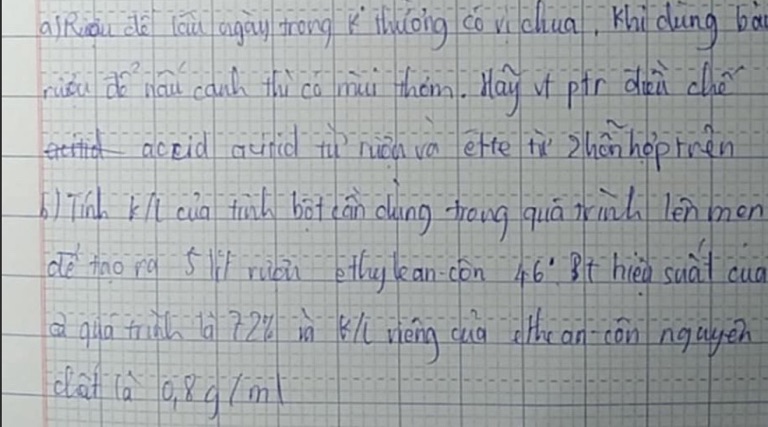 a) Rượu để lâu ngày trong k² thường có vị chua, khi dùng
rượu để nấu canh thì có mùi thơm. Hãy vt ptr điều chế
accid acitid từ rượu và ette từ 2 hỗn hợp trên
b) Tính k/l của tinh bột cần dùng trong quá trình lên men
để tạo ra 5 lít rượu ethylcan-côn 46°. Bt hiệu suất của
cả quá trình là 72% và k/l riêng của ethean-côn nguyên
chất là 0,8g/ml